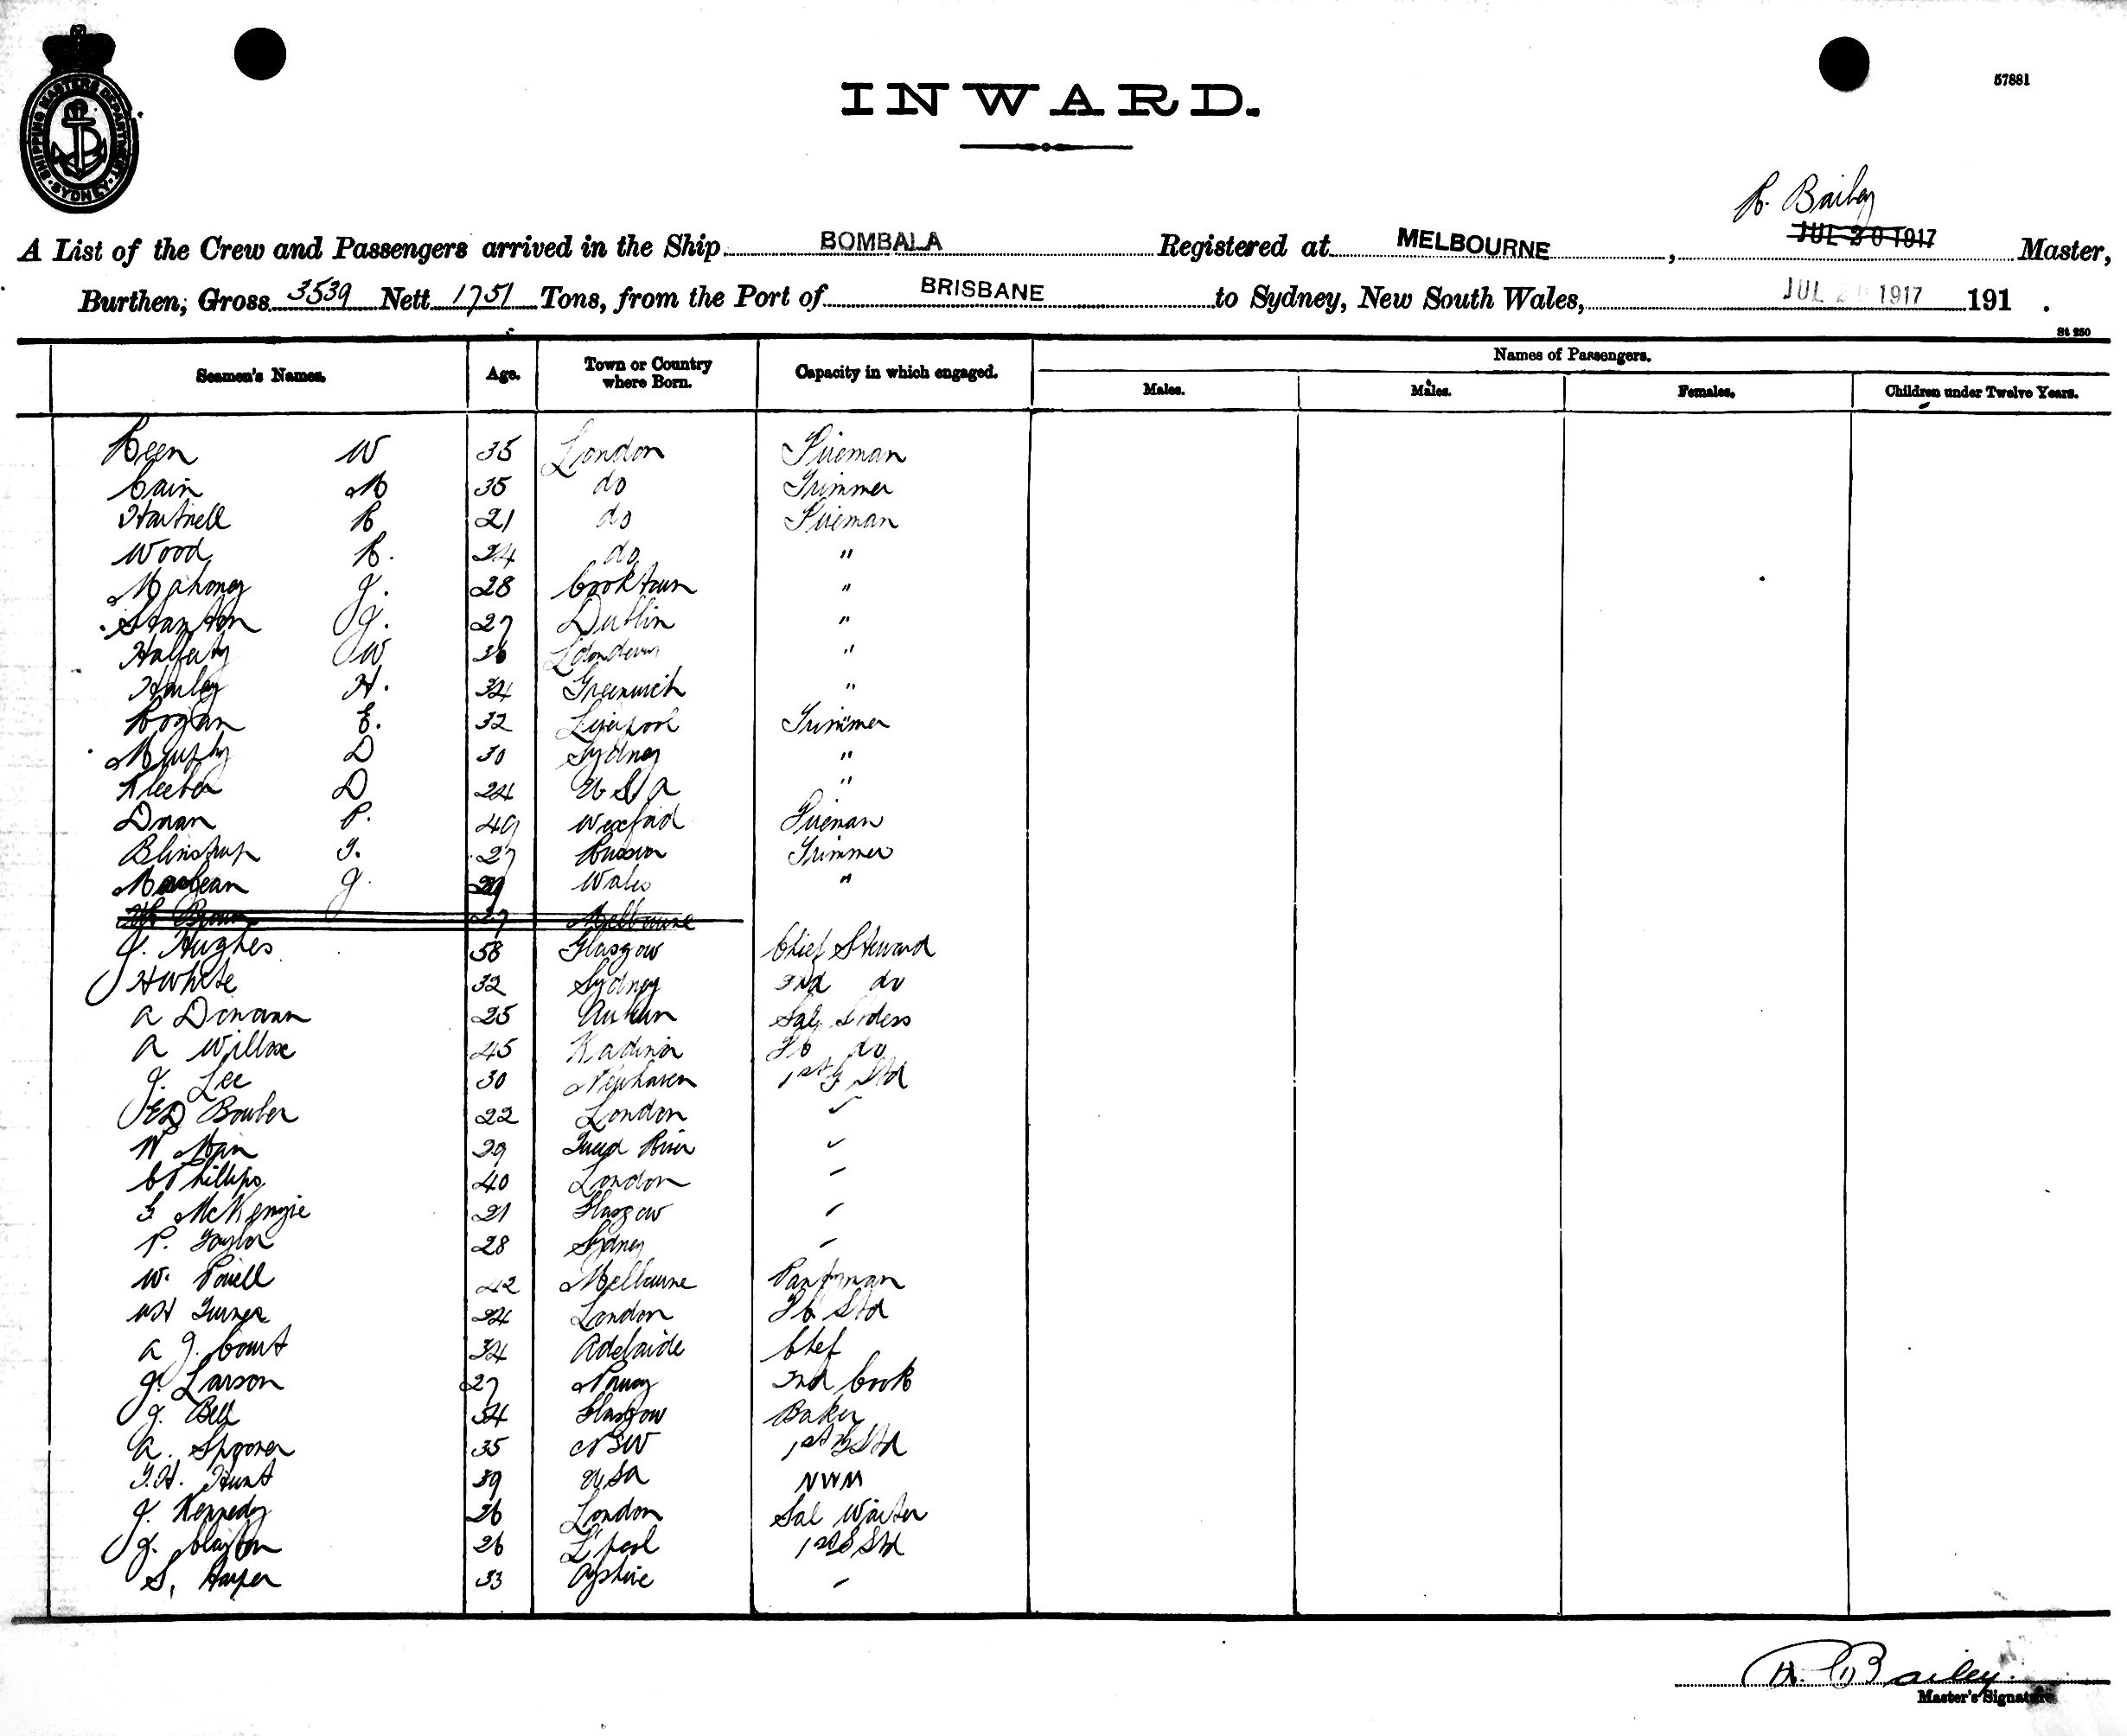 SHIPPING MASTERS DEPARTMENT · SYDNEY ·
57881
INWARD.
R. Bailey
A List of the Crew and Passengers arrived in the Ship BOMBALA Registered at MELBOURNE, JUL 20 1917 Master,
Burthen, Gross 3539 Nett 1751 Tons, from the Port of BRISBANE to Sydney, New South Wales, JUL 20 1917 191 .
St 250
Seamen's Names. Age. Town or Country where Born. Capacity in which engaged. Names of Passengers.
Males. Males. Females. Children under Twelve Years.
Keen W 35 London Fireman
Cain M 35 do Trimmer
Hartnell R 21 do Fireman
Wood R. 24 do "
Mahoney J. 28 Cooktown "
Stanton J. 27 Dublin "
W 36 "
Harley H. 34 Greenwich "
Hogan E. 32 Liverpool Trimmer
Murphy D 30 Sydney "
Kleeber D 24 U S A "
Doran P. 49 Wexford Fireman
Blinstrup J. 27 Russia Trimmer
MacBean J. Wales "
Brown 27 Melbourne
J. Hughes 58 Glasgow Chief Steward
H White 32 Sydney 2nd do
A 25 Sal
A Willox 45 Kadina do
J. Lee 30 Newhaven 1st Std
E D Bowber 22 London "
W Man 29 Tweed River "
C Phillips 40 London "
G McKenzie 21 Glasgow "
P. Taylor 28 Sydney "
W. Powell 42 Melbourne Pantryman
W H Turner 24 London Std
A J. Court 34 Adelaide Chef
J. Larson 27 Norway 2nd Cook
J. Bell 54 Glasgow Baker
A. Spooner 35 NSW 1st Std
T. H. Hunt 39 U S A NWM
J. Kennedy 26 London Sal Waiter
J. Clayton 26 L'pool 1st S Std
S. Harper 33 Ayshire "
R. Bailey.
Master's Signature